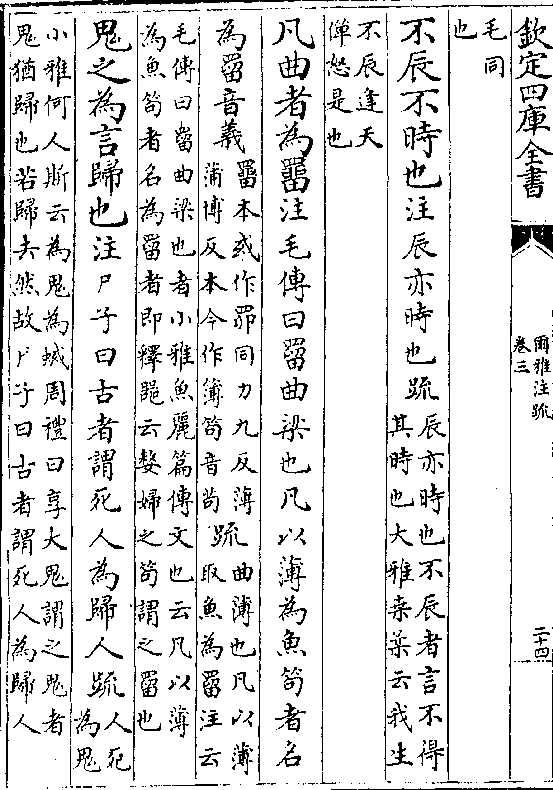 欽定四庫全書
爾雅注疏
卷三
二十四
毛同
也
不辰不時也注辰亦時也疏
辰亦時也不辰者言不得
其時也大雅桒柔云我生
不辰逢天
僤怒是也
凡曲者為罶注毛傳曰罶曲梁也凡以薄為魚笱者名
為罶音義
罶本或作罶同力九反薄
蒲博反本今作簿笱音苟
疏
曲薄也凡以薄
取魚為罶注云
毛傳曰罶曲梁也者小雅魚麗篇傳文也云凡以薄
為魚笱者名為罶者即釋器云嫠婦之笱謂之罶也
鬼之為言歸也注尸子曰古者謂死人為歸人疏
人死
為鬼
小雅何人斯云為鬼為蜮周禮曰享大鬼謂之鬼者
鬼猶歸也若歸去然故尸子曰古者謂死人為歸人